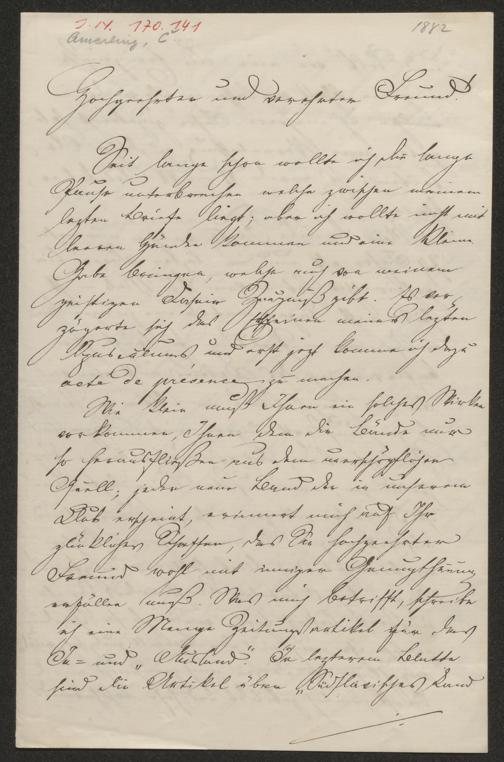 I.N. 170.141
Amerling, C
1882
Hochgeehrter und verehrter Freund!
Seit lange schon wollte ich die lange
Pause unterbrechen welche zwischen meinem
lezten Briefe liegt; aber ich wollte nicht mit
leeren Händen kommen und eine kleine
Gabe bringen, welche auch von meinem
geistigen Dasein Zeugniß gibt. Es ver-
zögerte sich das Erscheinen meines lezten
Opusculums und erst jezt komme ich dazu
acte de présence zu machen.
Wie klein muß Ihnen ein solches Wirken
vorkommen, Ihnen dem die Bände nur
so herausfließen aus dem unerschöpflichen
Quell; jeder neue Band der in unserem
Club erscheint, erinnert mich auf Ihr
glückliches Schaffen, das Sie hochgeehrter
Freund wohl mit inniger Genugthuung
erfüllen muß. Was mich betrifft, schreibe
ich eine Menge Zeitungsartikel für das
In= und „Ausland“. In lezterem Blatte
sind die Artikel über „Südslavisches Land